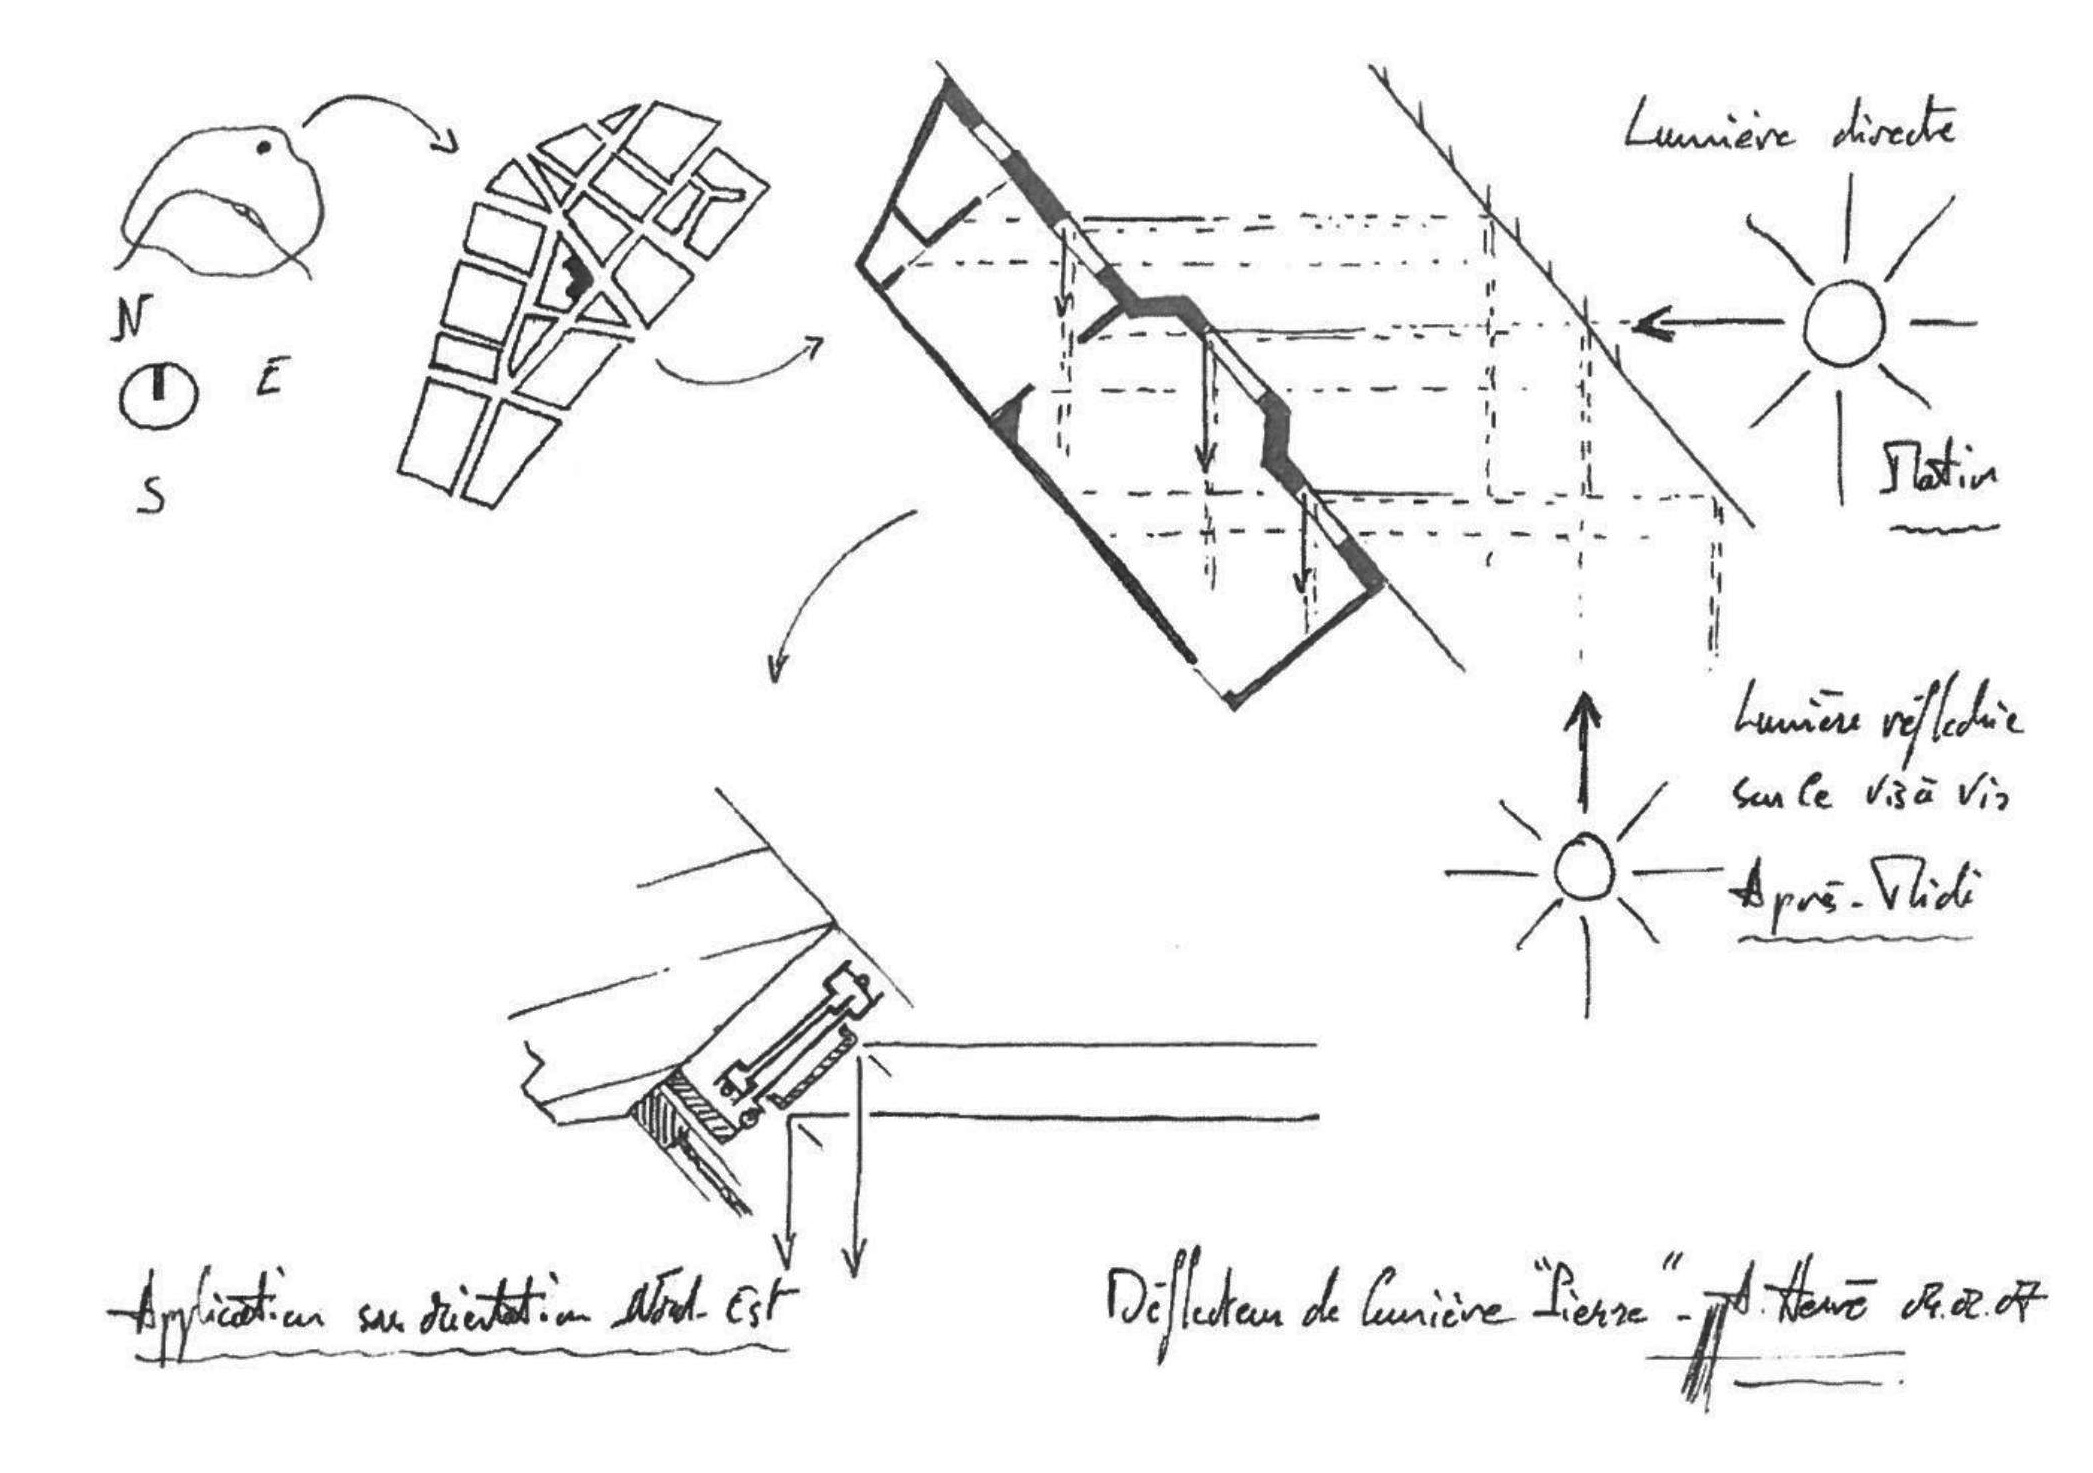 Lumière directe
N
E
S
Matin
Lumière réfléchie
sur le vis à vis
Après-Midi
Application sur orientation Nord-Est
Déflecteur de lumière "Pierre" - A. Hervé 04.02.07